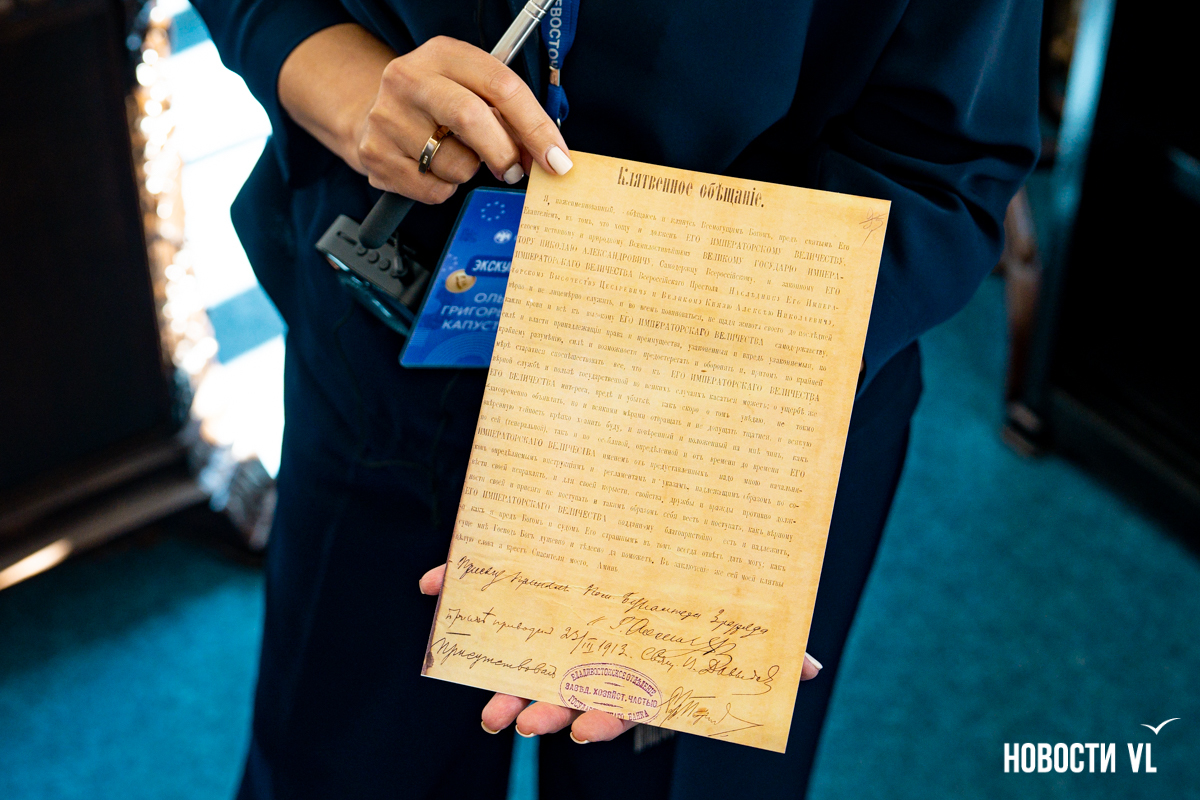 ЕВОСТОК
ЭКСКУ
ОЛЬ
ГРИГОР
КАПУСТ
Клятвенное обѣщаніе.
Я, нижеименованный, обѣщаюсь и клянусь Всемогущимъ Богомъ, предъ святымъ Его
Евангеліемъ, въ томъ, что хощу и долженъ ЕГО ИМПЕРАТОРСКОМУ ВЕЛИЧЕСТВУ,
своему истинному и природному Всемилостивѣйшему ВЕЛИКОМУ ГОСУДАРЮ ИМПЕРА-
ТОРУ НИКОЛАЮ АЛЕКСАНДРОВИЧУ, Самодержцу Всероссійскому, и законному ЕГО
ИМПЕРАТОРСКАГО ВЕЛИЧЕСТВА Всероссійскаго Престола Наслѣднику Его Импера-
торскому Высочеству Цесаревичу и Великому Князю Алексѣю Николаевичу,
вѣрно и нелицемѣрно служить, и во всемъ повиноваться, не щадя живота своего до послѣдней
капли крови и всѣ къ высокому ЕГО ИМПЕРАТОРСКАГО ВЕЛИЧЕСТВА самодержавству,
силѣ и власти принадлежащія права и преимущества, узаконенныя и впредь узаконяемыя, по
крайнему разумѣнію, силѣ и возможности предостерегать и оборонять и, притомъ, по крайней
мѣрѣ стараться споспѣшествовать все, что къ ЕГО ИМПЕРАТОРСКАГО ВЕЛИЧЕСТВА
вѣрной службѣ и пользѣ государственной во всякихъ случаяхъ касаться можетъ; о ущербѣ же
ЕГО ВЕЛИЧЕСТВА интереса, вредѣ и убыткѣ, какъ скоро о томъ увѣдаю, не токмо
благовременно объявлять, но и всякими мѣрами отвращать и не допущать тщатися, и всякую
ввѣренную тайность крѣпко хранить буду, и повѣренный и положенный на мнѣ чинъ, какъ
по сей (генеральной), такъ и по особливой, опредѣленной и отъ времени до времени ЕГО
ИМПЕРАТОРСКАГО ВЕЛИЧЕСТВА именемъ отъ предустановленныхъ надо мною начальни-
ковъ опредѣляемымъ инструкціямъ и регламентамъ и указамъ, надлежащимъ образомъ по со-
вѣсти своей исправлять, и для своей корысти, свойства, дружбы и вражды противно долж-
ности своей и присяги не поступать и такимъ образомъ себя весть и поступать, какъ вѣрному
ЕГО ИМПЕРАТОРСКАГО ВЕЛИЧЕСТВА подданному благопристойно есть и надлежитъ,
и какъ я предъ Богомъ и судомъ Его страшнымъ въ томъ всегда отвѣтъ дать могу; какъ
суще мнѣ Господь Богъ душевно и тѣлесно да поможетъ. Въ заключеніе же сей моей клятвы
цѣлую слова и крестъ Спасителя моего. Аминь
Присягу принялъ Разряда
Присягѣ приводилъ 23/IV 1913 г. Свящ.
Присутствовалъ
ВЛАДИВОСТОКСКОЕ ОТДѢЛЕНІЕ
ЗАВѢД. ХОЗЯЙСТ. ЧАСТЬЮ
ГОСУДАРСТВЕННАГО БАНКА
НОВОСТИ VL